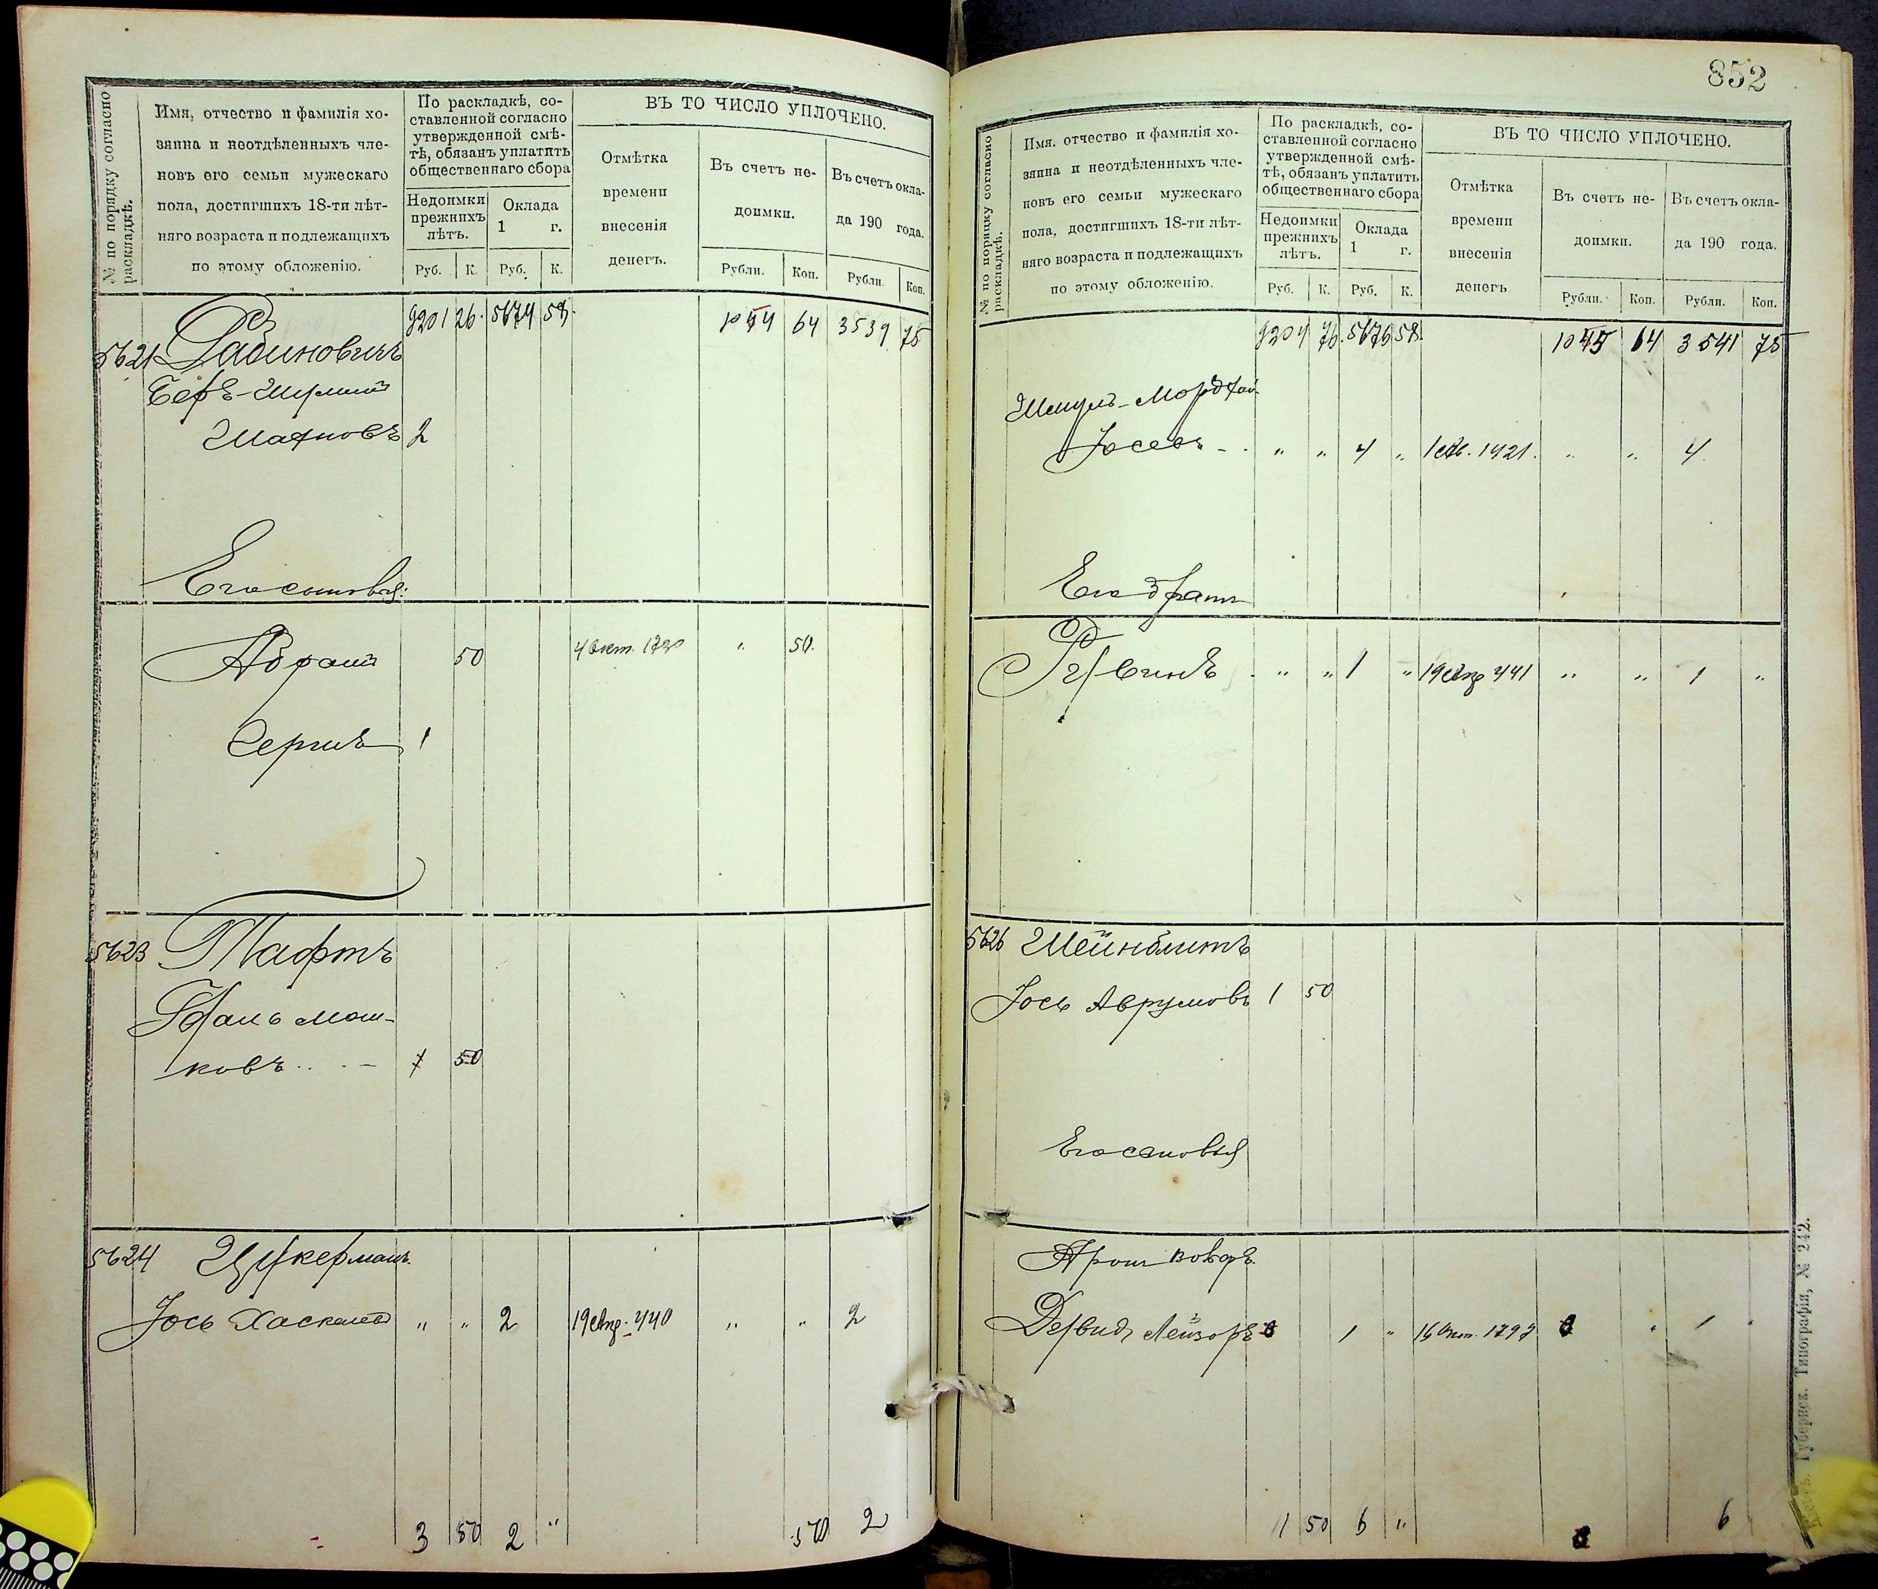 № по порядку согласно раскладкѣ.
Имя, отчество и фамилія хо-
зяина и неотдѣленныхъ чле-
новъ его семьи мужескаго
пола, достигшихъ 18-ти лѣт-
няго возраста и подлежащихъ
по этому обложенію.
По раскладкѣ, со-
ставленной согласно
утвержденной смѣ-
тѣ, обязанъ уплатить
общественнаго сбора
Недоимки
прежнихъ
лѣтъ.
Оклада
1 г.
Руб. К. Руб. К.
ВЪ ТО ЧИСЛО УПЛОЧЕНО.
Отмѣтка
времени
внесенія
денегъ.
Въ счетъ не-
доимки.
Въ счетъ окла-
да 190 года.
Рубли. Коп. Рубли. Коп.
9201 26 5674 58 1044 64 3539 75
5621 Рабиновичъ
Беръ-
Шахновъ 2
Его сыновья:
Абрамъ 50 4 Окт. „ 50
1
5623 Тафтъ
Мош-
ковъ 1 50
5624 Цукерманъ
Іось Хаскелевъ „ „ 2 19 Апр. 440 „ „ 2
3 50 2 „ 50 2
852
№ по порядку согласно раскладкѣ.
Имя, отчество и фамилія хо-
зяина и неотдѣленныхъ чле-
новъ его семьи мужескаго
пола, достигшихъ 18-ти лѣт-
няго возраста и подлежащихъ
по этому обложенію.
По раскладкѣ, со-
ставленной согласно
утвержденной смѣ-
тѣ, обязанъ уплатить
общественнаго сбора
Недоимки
прежнихъ
лѣтъ.
Оклада
1 г.
Руб. К. Руб. К.
ВЪ ТО ЧИСЛО УПЛОЧЕНО.
Отмѣтка
времени
внесенія
денегъ
Въ счетъ не-
доимки.
Въ счетъ окла-
да 190 года.
Рубли. Коп. Рубли. Коп.
9204 76 5676 58 1045 14 3541 75
Шмуль-Мордхай
Іосевъ „ „ 4 „ „ „ 4
Его братъ
„ „ 1 „ 19 Апр 441 „ „ 1 „
5626 Шейнблитъ
Іось Аврумовъ 1 50
Его сыновья
Арон Вольфъ
Лейзоръ 1 „ 16 Окт. 1797 1
1 50 6 „ 6
Губернск. Типографія, № 242.